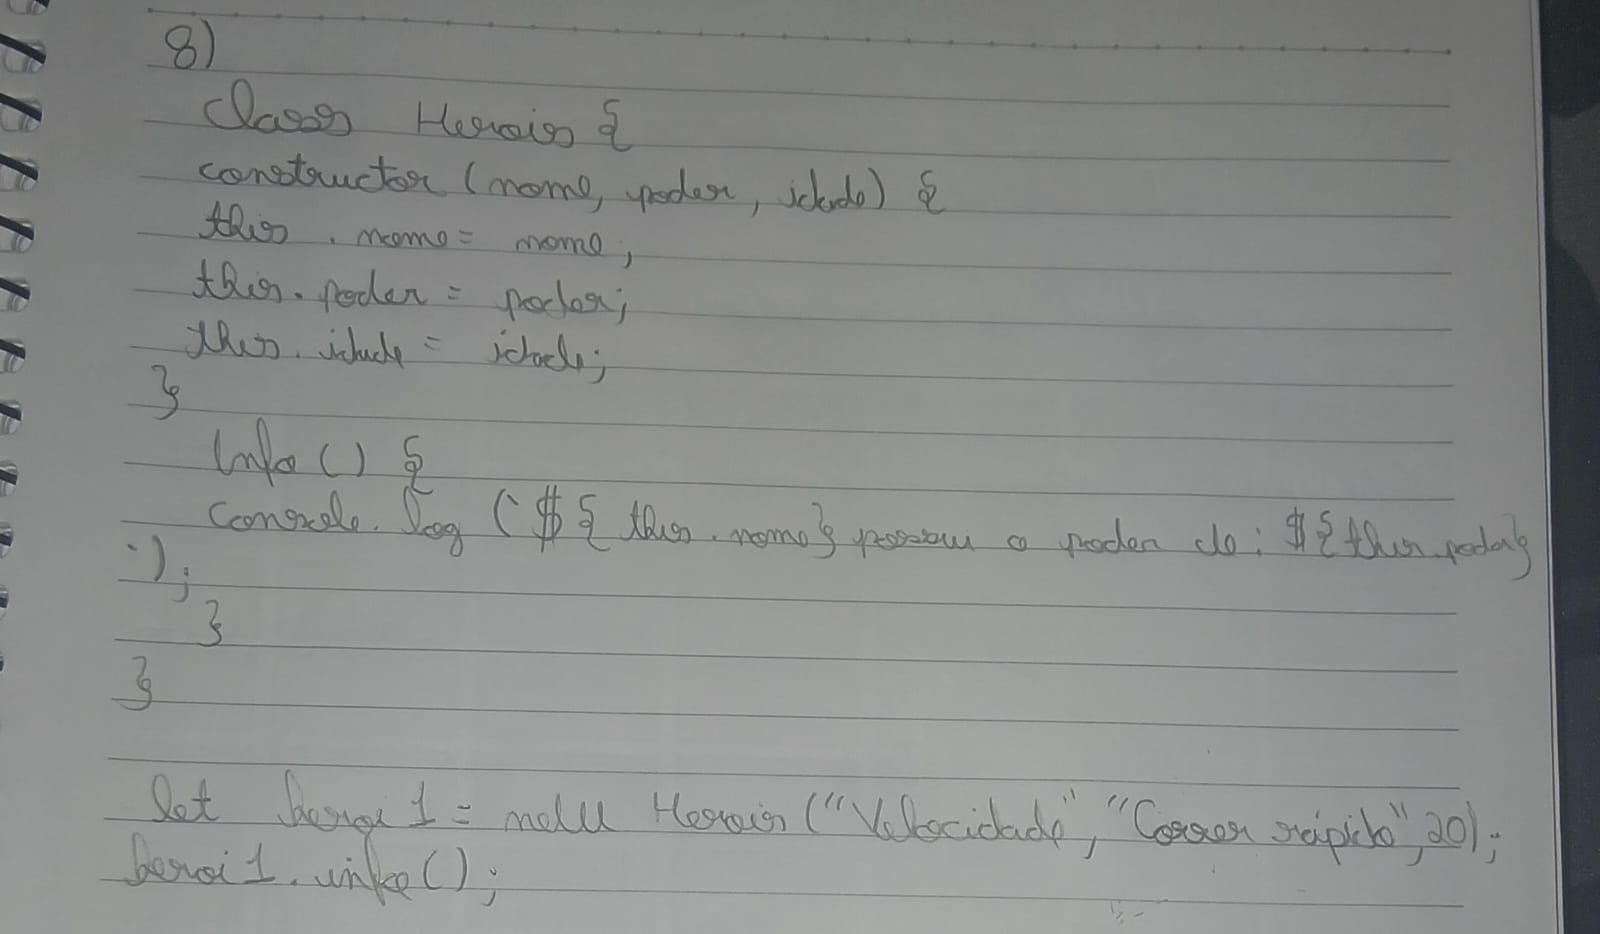 8)
Class Herois {
constructor (nome, poder, idade) {
this . nome = nome;
this. poder = poder;
this. idade = idade;
}
Info () {
console. log (` ${ this . nome} possui o poder de: ${ this.poder}
`);
}
}
let heroi 1 = new Herois ("Velocidade", "Correr rápido", 20);
heroi 1. info ();